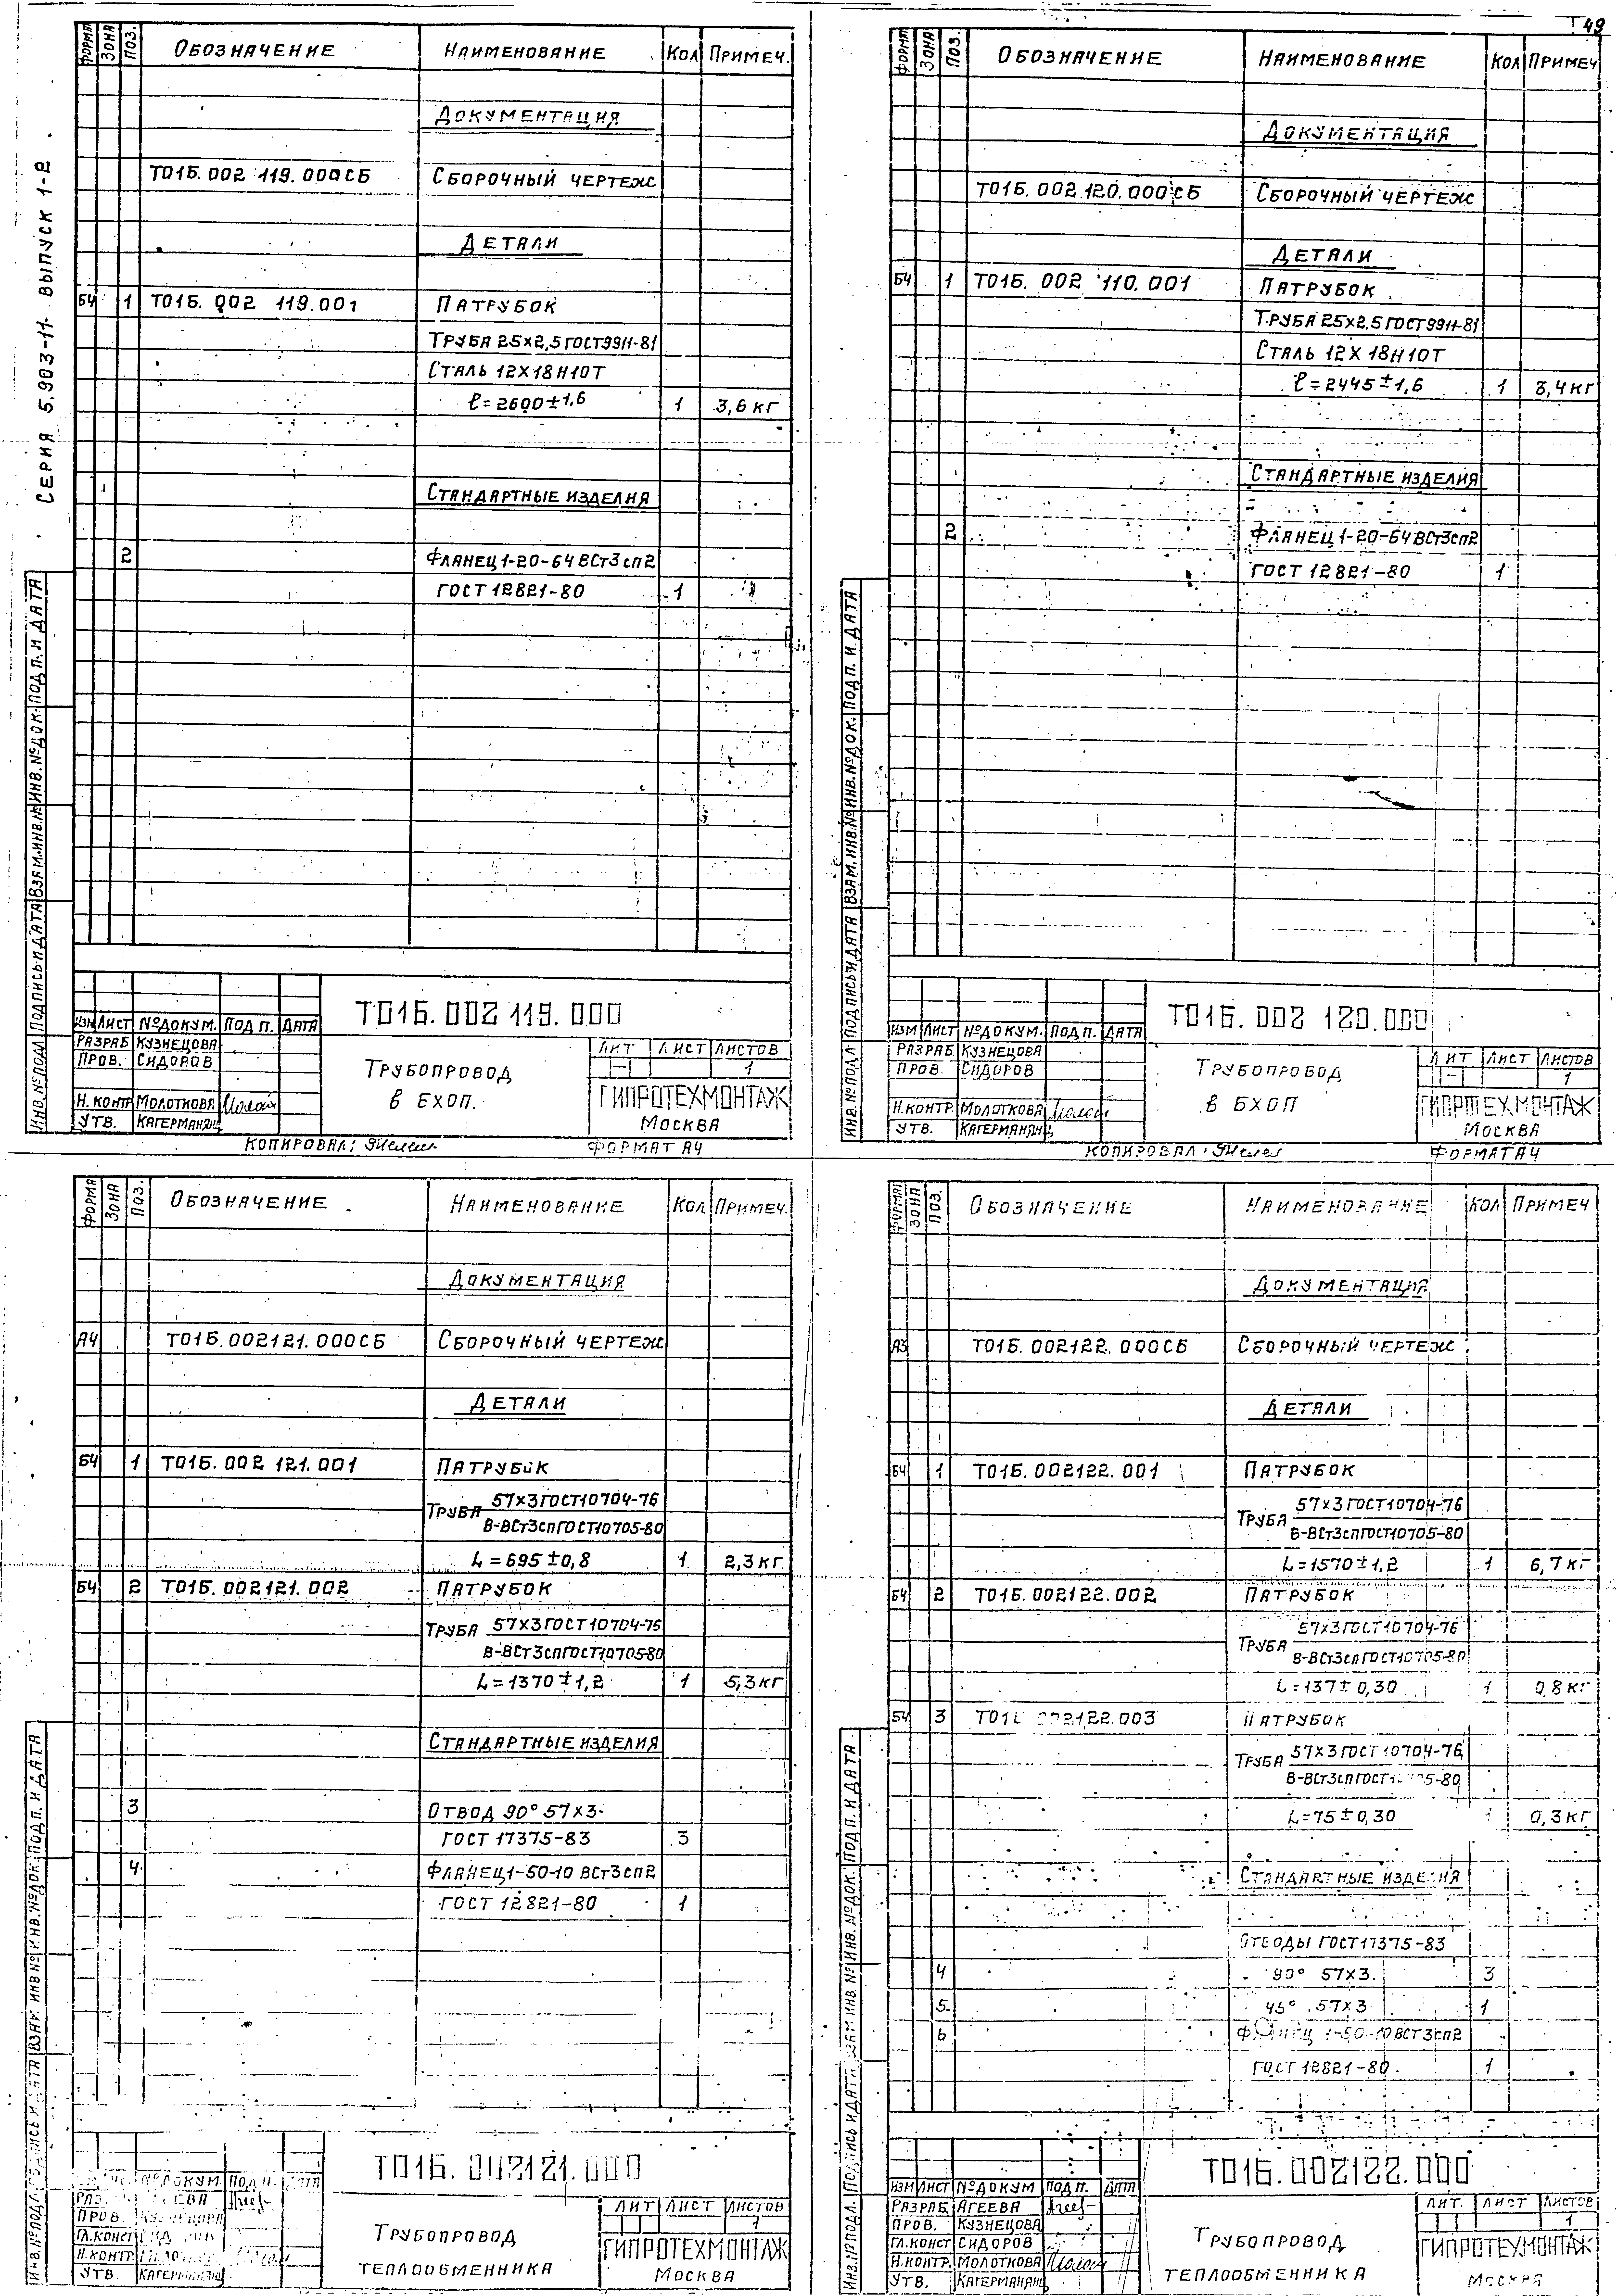 49
СЕРИЯ 5.903-11 ВЫПУСК 1-2
ФОРМА ЗОНА ПОЗ. ОБОЗНАЧЕНИЕ НАИМЕНОВАНИЕ КОЛ ПРИМЕЧ.
ДОКУМЕНТАЦИЯ
Т01Б. 002 119. 000СБ СБОРОЧНЫЙ ЧЕРТЕЖ
ДЕТАЛИ
БЧ 1 Т01Б. 002 119.001 ПАТРУБОК
ТРУБА 25×2,5 ГОСТ 9911-81
СТАЛЬ 12Х18Н10Т
ℓ=2600±1,6 1 3,6 кг
СТАНДАРТНЫЕ ИЗДЕЛИЯ
2 ФЛАНЕЦ 1-20-64 ВСт3сп2
ГОСТ 12821-80 1
ИНВ.№ ПОДЛ ПОДПИСЬ И ДАТА ВЗАМ.ИНВ.№ ИНВ.№ ДОК. ПОДП. И ДАТА
Т01Б. 002 119. 000
ИЗМ ЛИСТ №ДОКУМ. ПОДП. ДАТА
РАЗРАБ КУЗНЕЦОВА
ПРОВ. СИДОРОВ
Н.КОНТР МОЛОТКОВА
УТВ. КАГЕРМАНЯНЦ
ТРУБОПРОВОД
В БХОП.
ЛИТ ЛИСТ ЛИСТОВ
1
ГИПРОТЕХМОНТАЖ
МОСКВА
КОПИРОВАЛ: ФОРМАТ А4
ФОРМ ЗОНА ПОЗ. ОБОЗНАЧЕНИЕ НАИМЕНОВАНИЕ КОЛ ПРИМЕЧ
ДОКУМЕНТАЦИЯ
Т01Б. 002.120. 000 СБ СБОРОЧНЫЙ ЧЕРТЕЖ
ДЕТАЛИ
БЧ 1 Т01Б. 002 110. 001 ПАТРУБОК
ТРУБА 25×2,5 ГОСТ 9911-81
СТАЛЬ 12Х18Н10Т
ℓ=2445±1,6 1 3,4 кг
СТАНДАРТНЫЕ ИЗДЕЛИЯ
2 ФЛАНЕЦ 1-20-64 ВСт3сп2
ГОСТ 12821-80 1
ИНВ. № ПОДЛ ПОДПИСЬ И ДАТА ВЗАМ.ИНВ.№ ИНВ.№ ДОК. ПОДП. И ДАТА
Т01Б. 002 120.000
ИЗМ ЛИСТ №ДОКУМ. ПОДП. ДАТА
РАЗРАБ КУЗНЕЦОВА
ПРОВ. СИДОРОВ
Н.КОНТР МОЛОТКОВА
УТВ. КАГЕРМАНЯНЦ
ТРУБОПРОВОД
В БХОП
ЛИТ ЛИСТ ЛИСТОВ
1
ГИПРОТЕХМОНТАЖ
МОСКВА
КОПИРОВАЛ: ФОРМАТ А4
ФОРМА ЗОНА ПОЗ. ОБОЗНАЧЕНИЕ НАИМЕНОВАНИЕ КОЛ ПРИМЕЧ.
ДОКУМЕНТАЦИЯ
А4 Т01Б.002121.000СБ СБОРОЧНЫЙ ЧЕРТЕЖ
ДЕТАЛИ
БЧ 1 Т01Б. 002 121.001 ПАТРУБОК
ТРУБА 57×3 ГОСТ 10704-76
В-ВСт3сп ГОСТ 10705-80
L=695±0,8 1 2,3 кг
БЧ 2 Т01Б.002121.002 ПАТРУБОК
ТРУБА 57×3 ГОСТ 10704-76
В-ВСт3сп ГОСТ 10705-80
L=1370±1,2 1 5,3 кг
СТАНДАРТНЫЕ ИЗДЕЛИЯ
3 ОТВОД 90° 57×3
ГОСТ 17375-83 3
4 ФЛАНЕЦ 1-50-10 ВСт3сп2
ГОСТ 12821-80 1
ИНВ.№ ПОДЛ ПОДПИСЬ И ДАТА ВЗАМ. ИНВ № ИНВ.№ ДОК. ПОДП. И ДАТА
Т01Б. 002121.000
№ДОКУМ ПОДП. ДАТА
ПРОВ.
ГЛ.КОНСТ
Н.КОНТР.
УТВ. КАГЕРМАНЯНЦ
ТРУБОПРОВОД
ТЕПЛООБМЕННИКА
ЛИТ ЛИСТ ЛИСТОВ
1
ГИПРОТЕХМОНТАЖ
МОСКВА
ФОРМАТ ЗОНА ПОЗ. ОБОЗНАЧЕНИЕ НАИМЕНОВАНИЕ КОЛ ПРИМЕЧ
ДОКУМЕНТАЦИЯ
А3 Т01Б.002122.000СБ СБОРОЧНЫЙ ЧЕРТЕЖ
ДЕТАЛИ
БЧ 1 Т01Б.002122.001 ПАТРУБОК
ТРУБА 57×3 ГОСТ 10704-76
В-ВСт3сп ГОСТ 10705-80
L=1570±1,2 1 6,7 кг
БЧ 2 Т01Б.002122.002 ПАТРУБОК
ТРУБА 57×3 ГОСТ 10704-76
В-ВСт3сп ГОСТ 10705-80
L=137±0,30 1 0,8 кг
БЧ 3 Т01Б 002122.003 ПАТРУБОК
ТРУБА 57×3 ГОСТ 10704-76
В-ВСт3сп ГОСТ 10705-80
L=75±0,30 1 0,3 кг
СТАНДАРТНЫЕ ИЗДЕЛИЯ
ОТВОДЫ ГОСТ 17375-83
4 90° 57×3 3
5 45° 57×3 1
6 ФЛАНЕЦ 1-50-10 ВСт3сп2
ГОСТ 12821-80 1
ИНВ.№ ПОДЛ. ПОДПИСЬ И ДАТА ВЗАМ ИНВ. № ИНВ.№ ДОК. ПОДП. И ДАТА
Т01Б.002122.000
ИЗМ ЛИСТ №ДОКУМ ПОДП. ДАТА
РАЗРАБ. АГЕЕВА
ПРОВ. КУЗНЕЦОВА
ГЛ.КОНСТ СИДОРОВ
Н.КОНТР. МОЛОТКОВА
УТВ. КАГЕРМАНЯНЦ
ТРУБОПРОВОД
ТЕПЛООБМЕННИКА
ЛИТ. ЛИСТ ЛИСТОВ
1
ГИПРОТЕХМОНТАЖ
МОСКВА